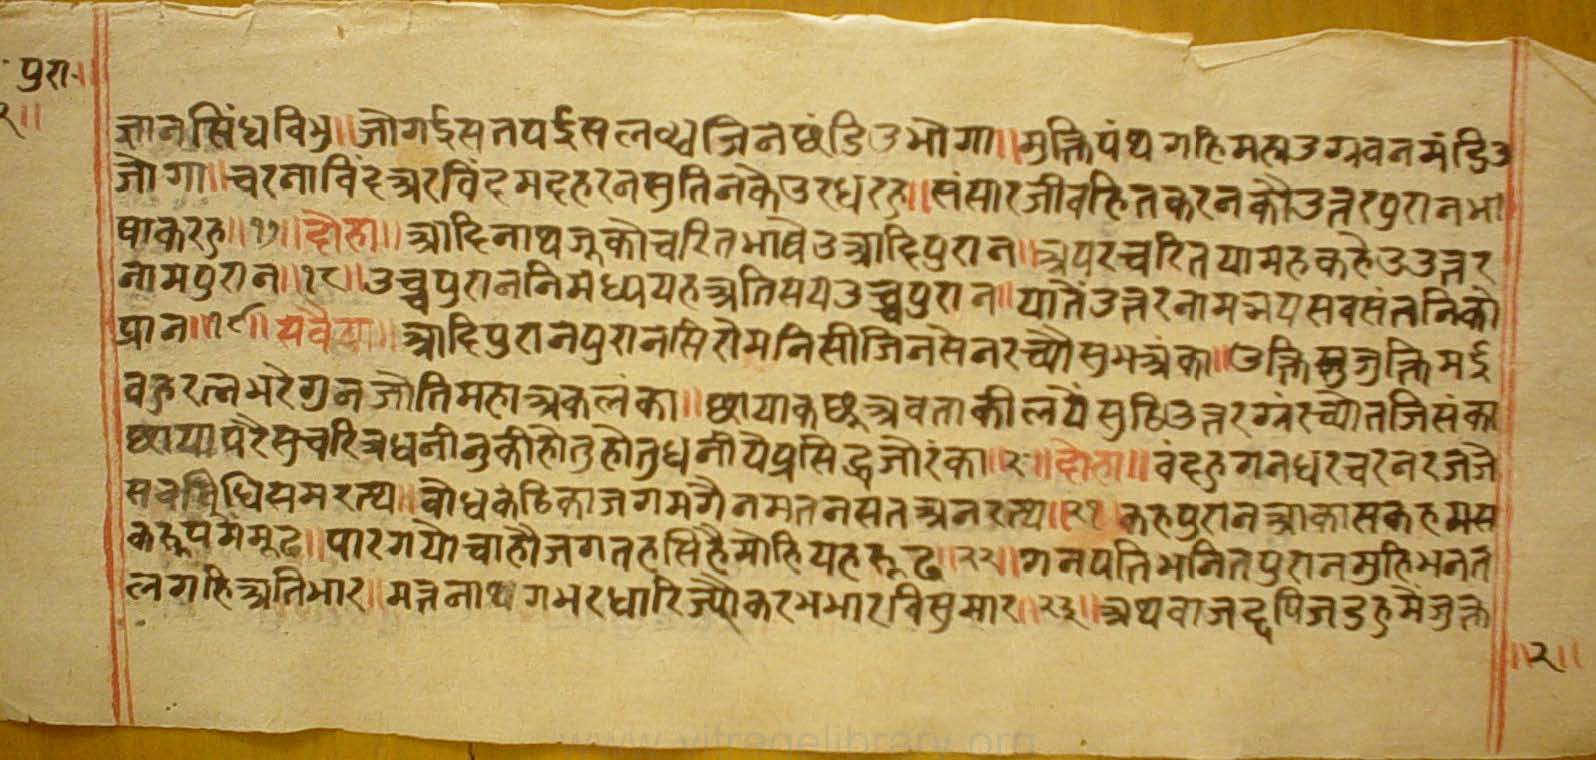 पुरा॰॥
२॥
ज्ञानसिंधविभु॥जोगईसतपईसलष्षजिनछंडिउभोगा॥मुक्तिपंथगहिमहाउग्रवनमंडिउ
जोगा॥चरनाविंदअरविंदमदहरनसुतिनकैउरधरहु॥संसारजीवहितकरनकौउत्तरपुरानभा
षाकरहु॥१७॥दोहा॥आदिनाथजूकोचरितभाषेउआदिपुरान॥अपरचरितयामहकहेउउत्तर
नामपुरान॥१८॥उच्चपुराननिमध्ययहअतिसयउच्चपुरान॥यातेंउत्तरनामभयसबसंतनिको
प्रान॥१९॥सवैया॥आदिपुरानपुरानसिरोमनिसीजिनसेनरच्यौसुभअंका॥उक्तिसुजुक्तिमई
बहुरत्नभरेगुनजोतिमहाअकलंका॥छायाकछूअवताकीलयेंसुठिउत्तरग्रंरच्यौतजिसंका
छायापरैसुचरित्रधनीनुकीहौतुहौतुधनीयेप्रसिद्धजोरंका॥२॰॥दोहा॥वंदहुगनधरचरनरजजे
सबविधिसमरत्थ॥बोधकंठिकाजगमगैनमतनसतअनरत्थ॥२१॥कहपुरानआकासकहमस
करूपमेमूढ॥पारगयोचाहौजगतहसिहैमोहियहरूढ॥२२॥गनपतिभनितपुरानमुहिभनत
लगहिअतिभार॥मत्तनाथगभरधारिज्यौकरभभारविसुमार॥२३॥अथवाजद्दपिजडहुमेंजुक्त
॥२॥
www.vitragelibrary.org